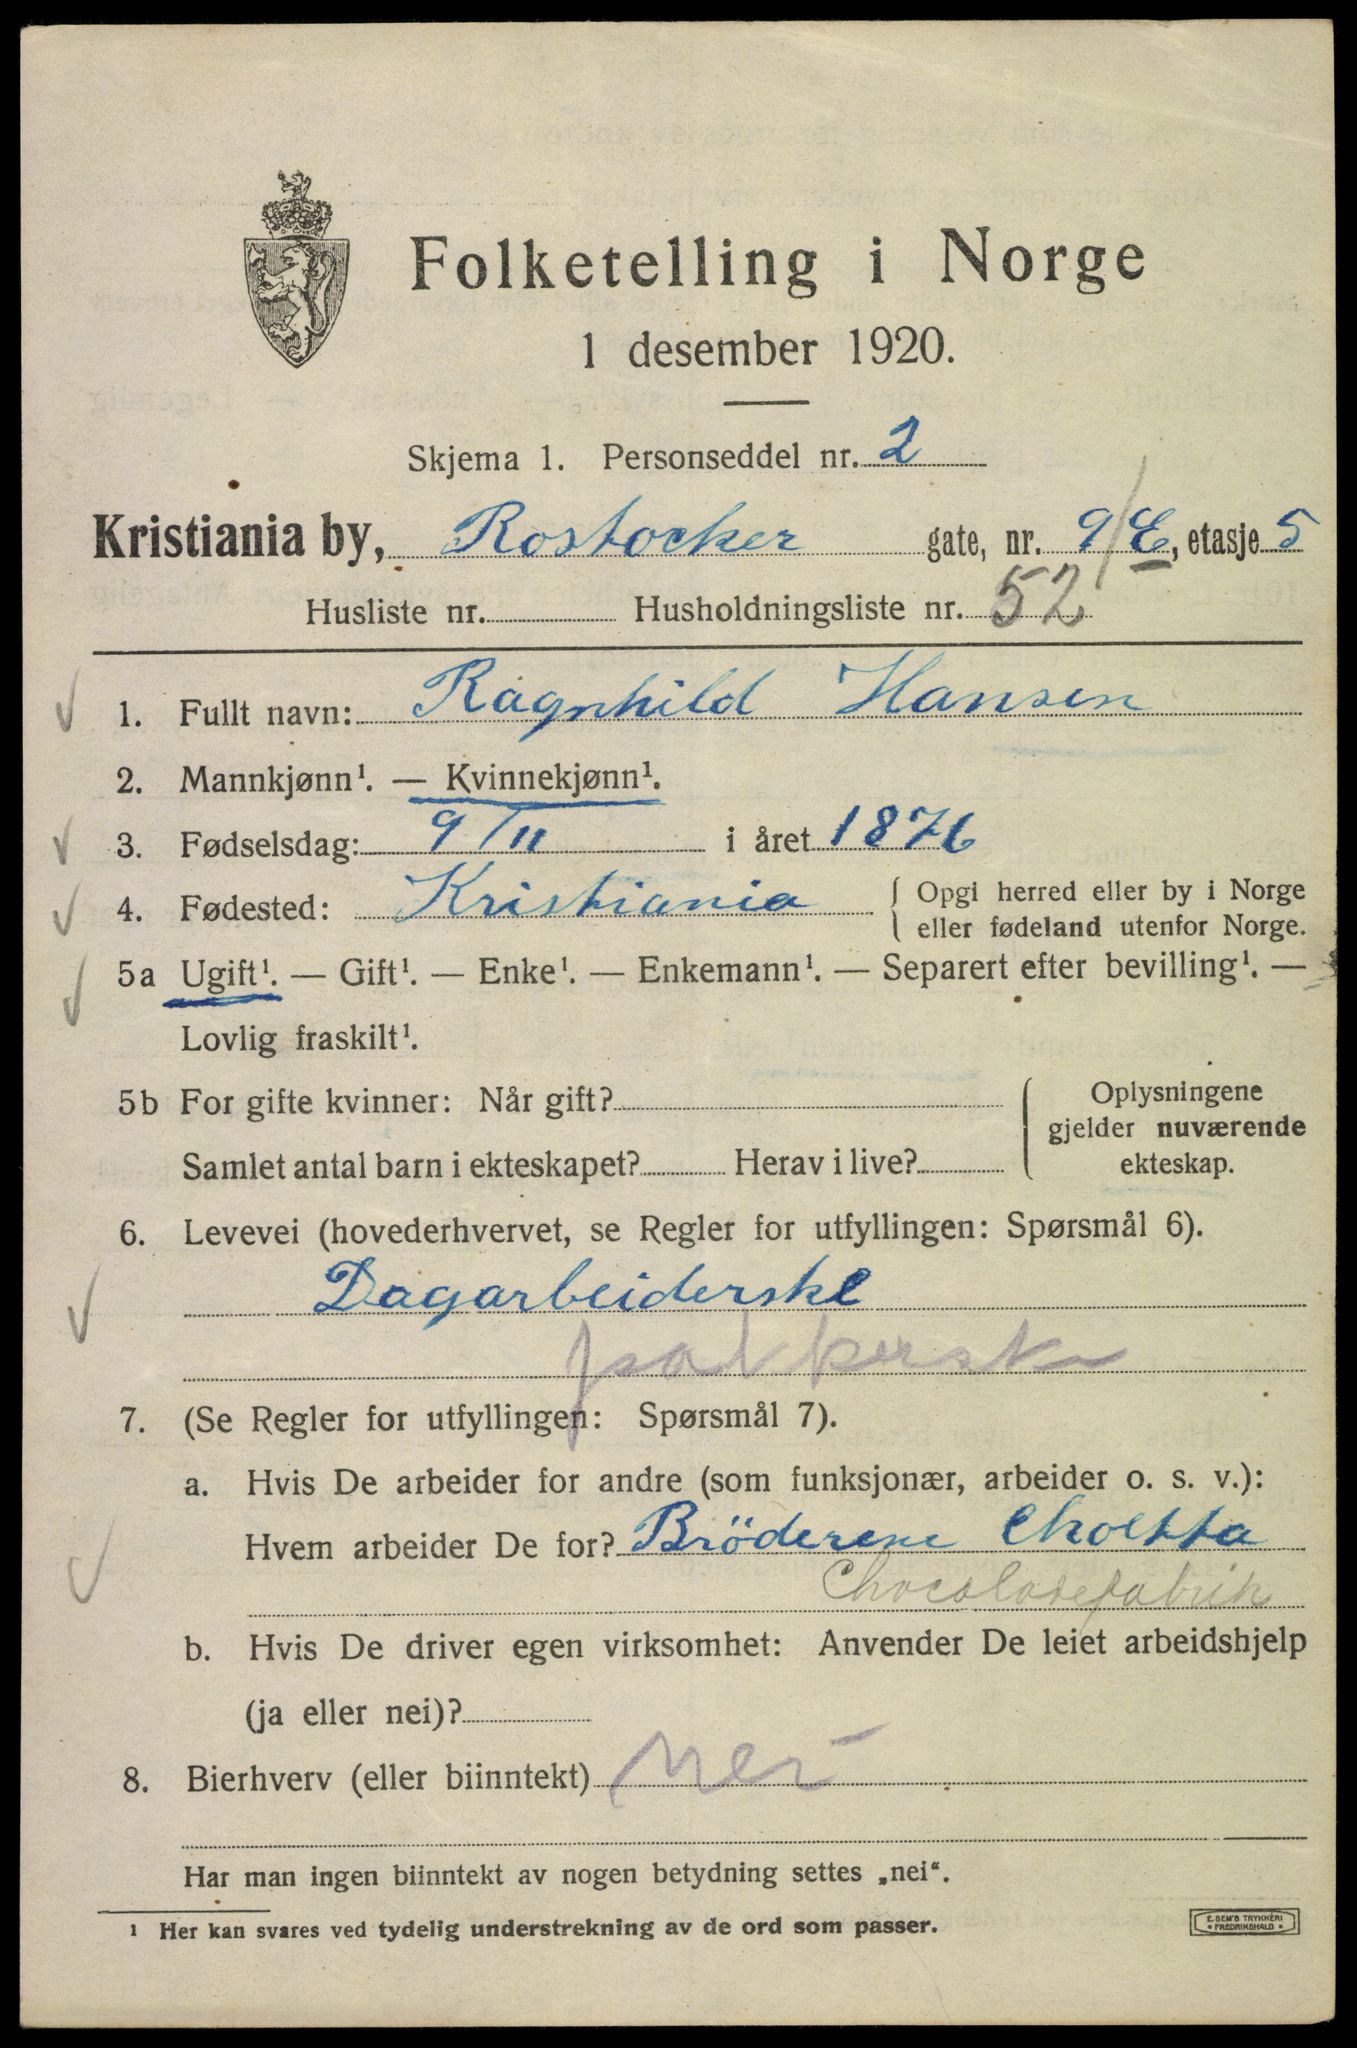 Folketelling i Norge
1 desember 1920.
Skjema 1. Personseddel nr. 2
Kristiania by, Rostocker gate, nr. 9/E, etasje 5
Husliste nr. Husholdningsliste nr. 52
1. Fullt navn: Ragnhild Hansen
2. Mannkjønn¹. — Kvinnekjønn¹.
3. Fødselsdag: 9/11 i året 1876
4. Fødested: Kristiania { Opgi herred eller by i Norge
eller fødeland utenfor Norge.
5a Ugift¹. — Gift¹. — Enke¹. — Enkemann¹. — Separert efter bevilling¹. —
Lovlig fraskilt¹.
5b For gifte kvinner: Når gift? Oplysningene
gjelder nuværende
Samlet antal barn i ekteskapet? Herav i live? ekteskap.
6. Levevei (hovederhvervet, se Regler for utfyllingen: Spørsmål 6).
Dagarbeiderske
pakkerske
7. (Se Regler for utfyllingen: Spørsmål 7).
a. Hvis De arbeider for andre (som funksjonær, arbeider o. s. v.):
Hvem arbeider De for? Bröderene
Chocoladefabrik
b. Hvis De driver egen virksomhet: Anvender De leiet arbeidshjelp
(ja eller nei)?
8. Bierhverv (eller biinntekt) nei
Har man ingen biinntekt av nogen betydning settes „nei“.
¹ Her kan svares ved tydelig understrekning av de ord som passer.
E. SEM'S TRYKKERI
• FREDRIKSHALD •